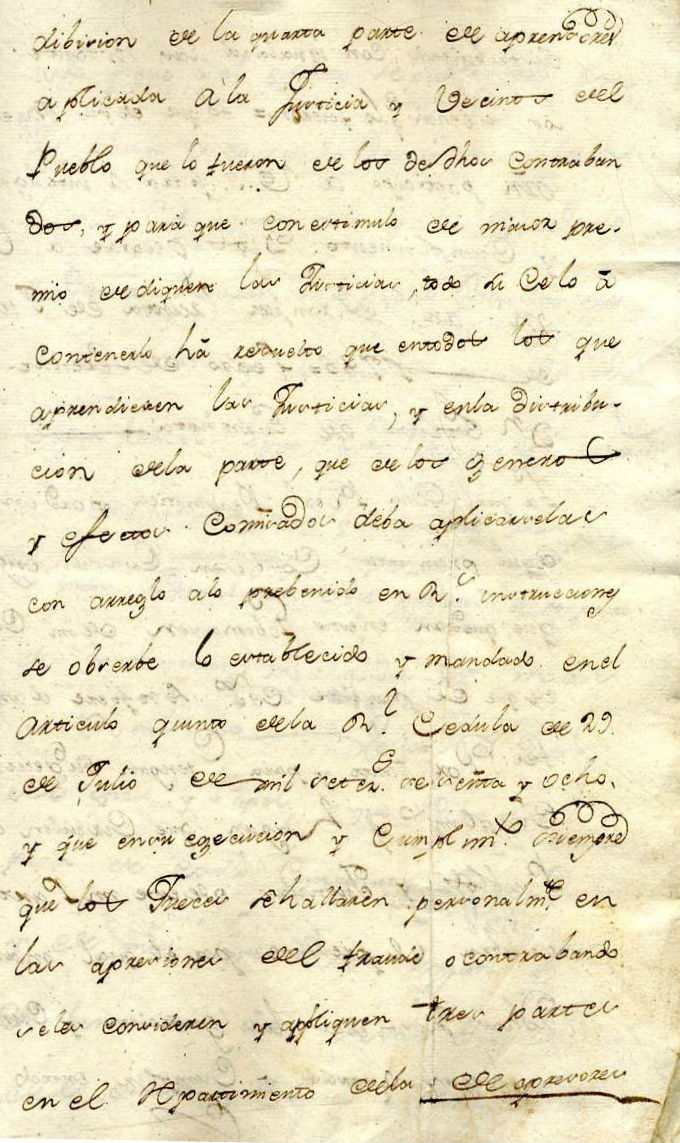 dibision de la quarta parte de aprensores
aplicada â la Justicia y Vecinos del
Pueblo que lo fueron de los desdhos Contraban
dos, y para que con estimulo de maior pre-
mio dediquen las Justicias, todo su Celo â
contenerlo hâ resuelto que entodos los que
aprendiesen las Justicias, y enla distribu-
cion dela parte, que de los generos
y efectos Comisados deba aplicarselas
con arreglo alo prebenido en Rs. instrucciones
se obserbe lo establecido y mandado enel
Articulo quinto dela Rl. Cedula de 29.
de Julio de mil setecs. sesenta y ocho,
y que ensu egecucion y Cumplimto. siempre
que los Jueces se hallaren personalmte. en
las apresiones del fraude o contrabando
selas consideren y appliquen tres partes
en el Repartimiento dela de apresores